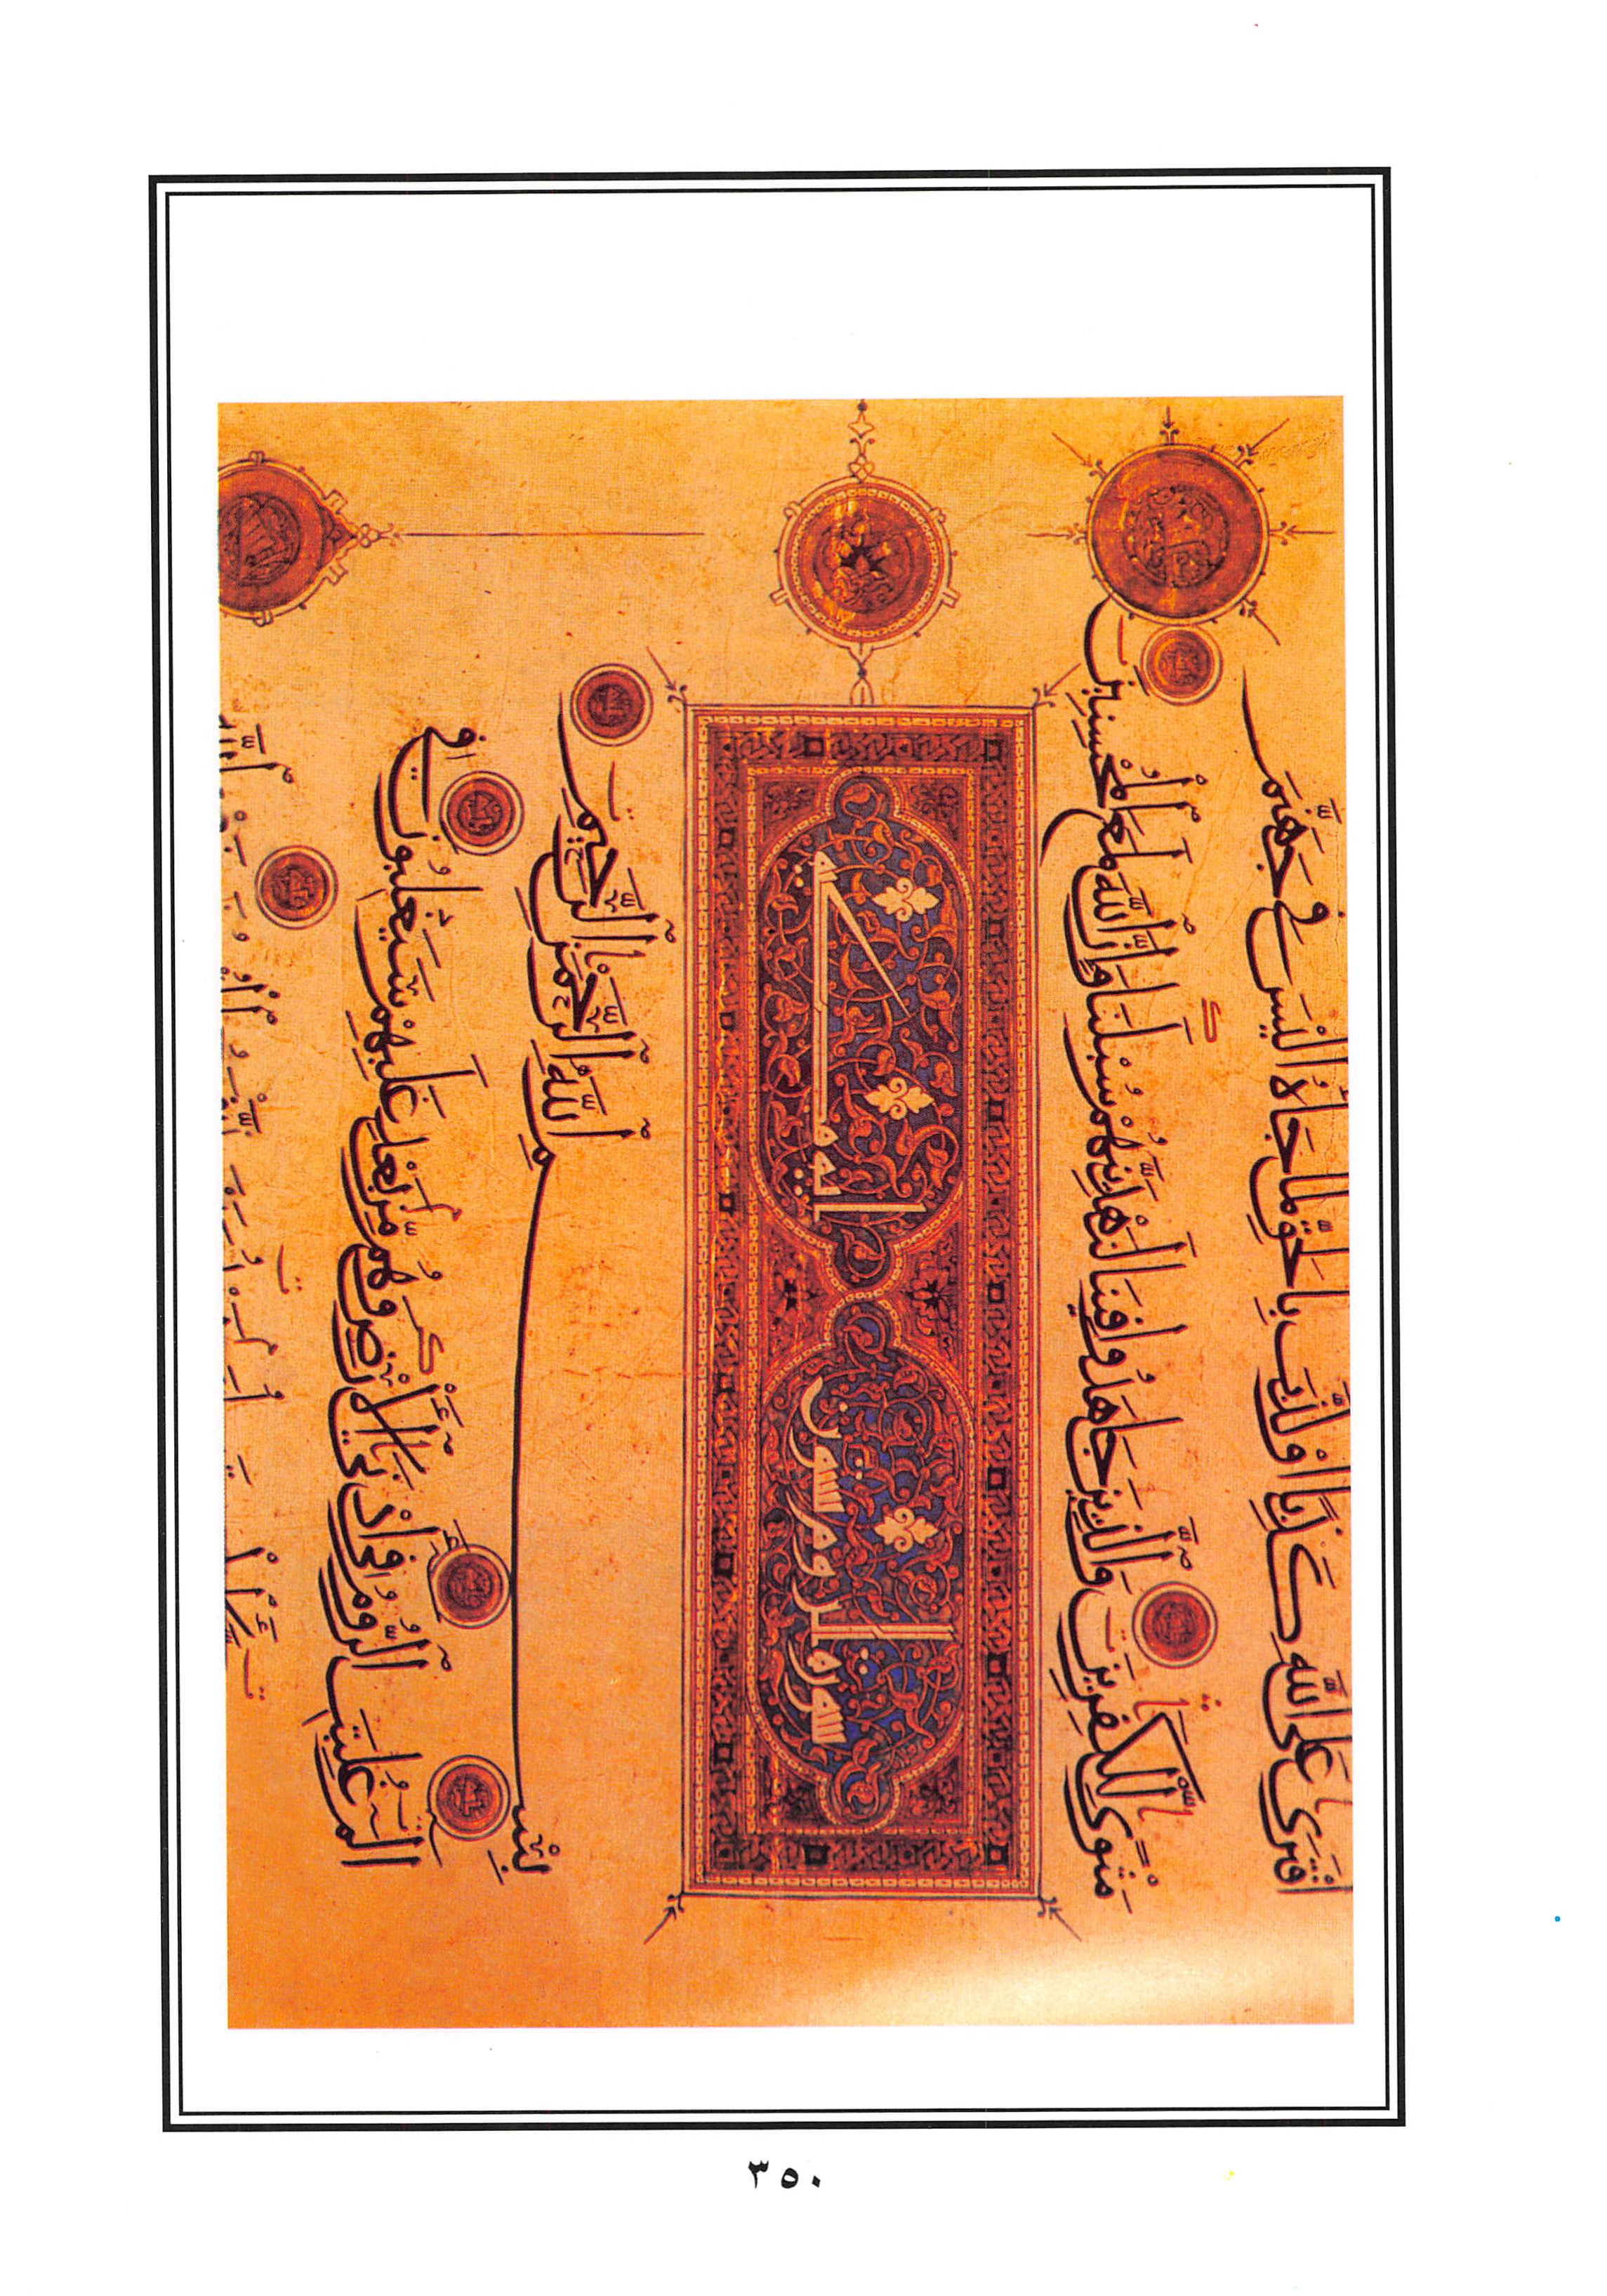 اَفْتَرَىٰ عَلَى اللَّهِ كَذِبًا أَوْ كَذَّبَ بِالْحَقِّ لَمَّا جَاءَهُ أَلَيْسَ فِي جَهَنَّمَ
مَثْوًى لِلْكَٰفِرِينَ وَالَّذِينَ جَاهَدُوا فِينَا لَنَهْدِيَنَّهُمْ سُبُلَنَا وَإِنَّ اللَّهَ لَمَعَ الْمُحْسِنِينَ
سورة الروم ستون اية مكية
بِسْمِ اللَّهِ الرَّحْمَٰنِ الرَّحِيمِ
الم غُلِبَتِ الرُّومُ فِي أَدْنَى الْأَرْضِ وَهُمْ مِنْ بَعْدِ غَلَبِهِمْ سَيَغْلِبُونَ فِي
٣٥٠